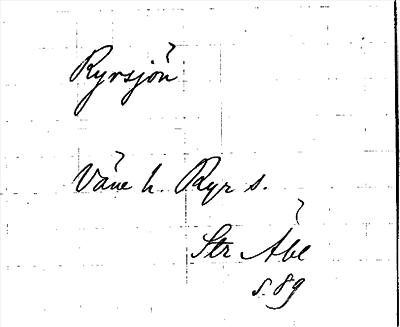 Ryrsjön
Väne h. Ryr s.
Str Åbe
s. 89